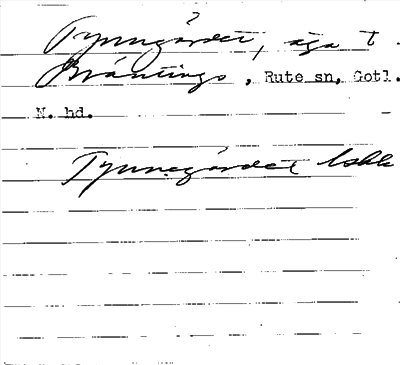 Tynngårdet, äga t.
Bräntings, Rute sn, Gotl.
N. hd.
Tynnegårdet